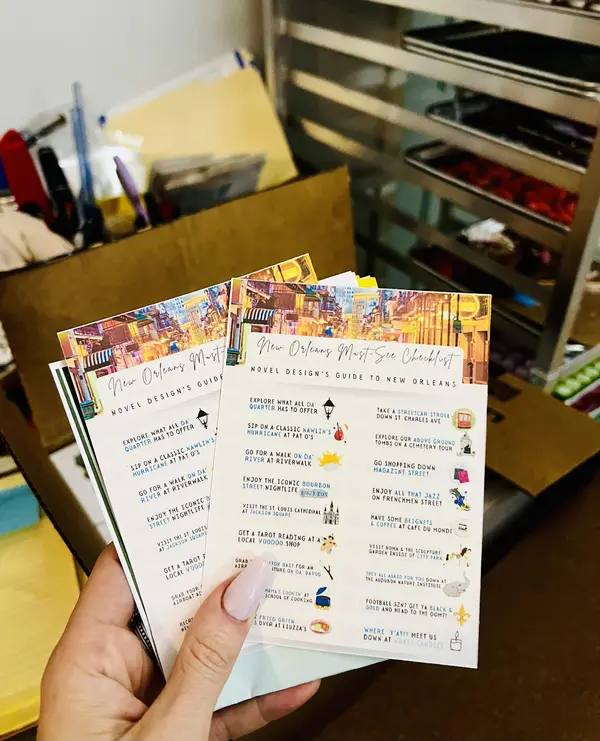 New Orleans Must-See Checklist
NOVEL DESIGN'S GUIDE TO NEW ORLEANS
EXPLORE WHAT ALL DA'
QUARTER HAS TO OFFER
SIP ON A CLASSIC NAWLIN'S
HURRICANE AT PAT O'S
GO FOR A WALK ON DA'
RIVER AT RIVERWALK
ENJOY THE ICONIC BOURBON
STREET NIGHTLIFE
VISIT THE ST LOUIS CATHEDRAL
AT JACKSON SQUARE
GET A TAROT READING AT A
LOCAL VOODOO SHOP
BAIT FOR AN
ON DA' BAYOU
MAMA'S COOKIN' AT
SCHOOL OF COOKING
FRIED GREEN
OVER AT LIUZZA'S
TAKE A STREETCAR STROLL
DOWN ST. CHARLES AVE
EXPLORE OUR ABOVE GROUND
TOMBS ON A CEMETERY TOUR
GO SHOPPING DOWN
MAGAZINE STREET
ENJOY ALL THAT JAZZ
ON FRENCHMEN STREET
HAVE SOME BEIGNETS
& COFFEE AT CAFE DU MONDE
VISIT NOMA & THE SCULPTURE
GARDEN INSIDE OF CITY PARK
THEY ALL ASKED FOR YOU DOWN AT
THE AUDUBON NATURE INSTITUTE
FOOTBALL SZN? GET YA BLACK &
GOLD AND HEAD TO THE DOME!
WHERE 'Y'AT!? MEET US
DOWN AT
New Orleans Must-
NOVEL DESIGN'S GUIDE
EXPLORE WHAT ALL DA'
QUARTER HAS TO OFFER
SIP ON A CLASSIC NAWLIN'S
HURRICANE AT PAT O'S
GO FOR A WALK ON DA'
RIVER AT RIVERWALK
ENJOY THE ICONIC
STREET NIGHTLIFE
VISIT THE ST LOUIS
AT JACKSON SQUARE
GET A TAROT
LOCAL VOODOO
GRAB YOUR
AIRBOAT